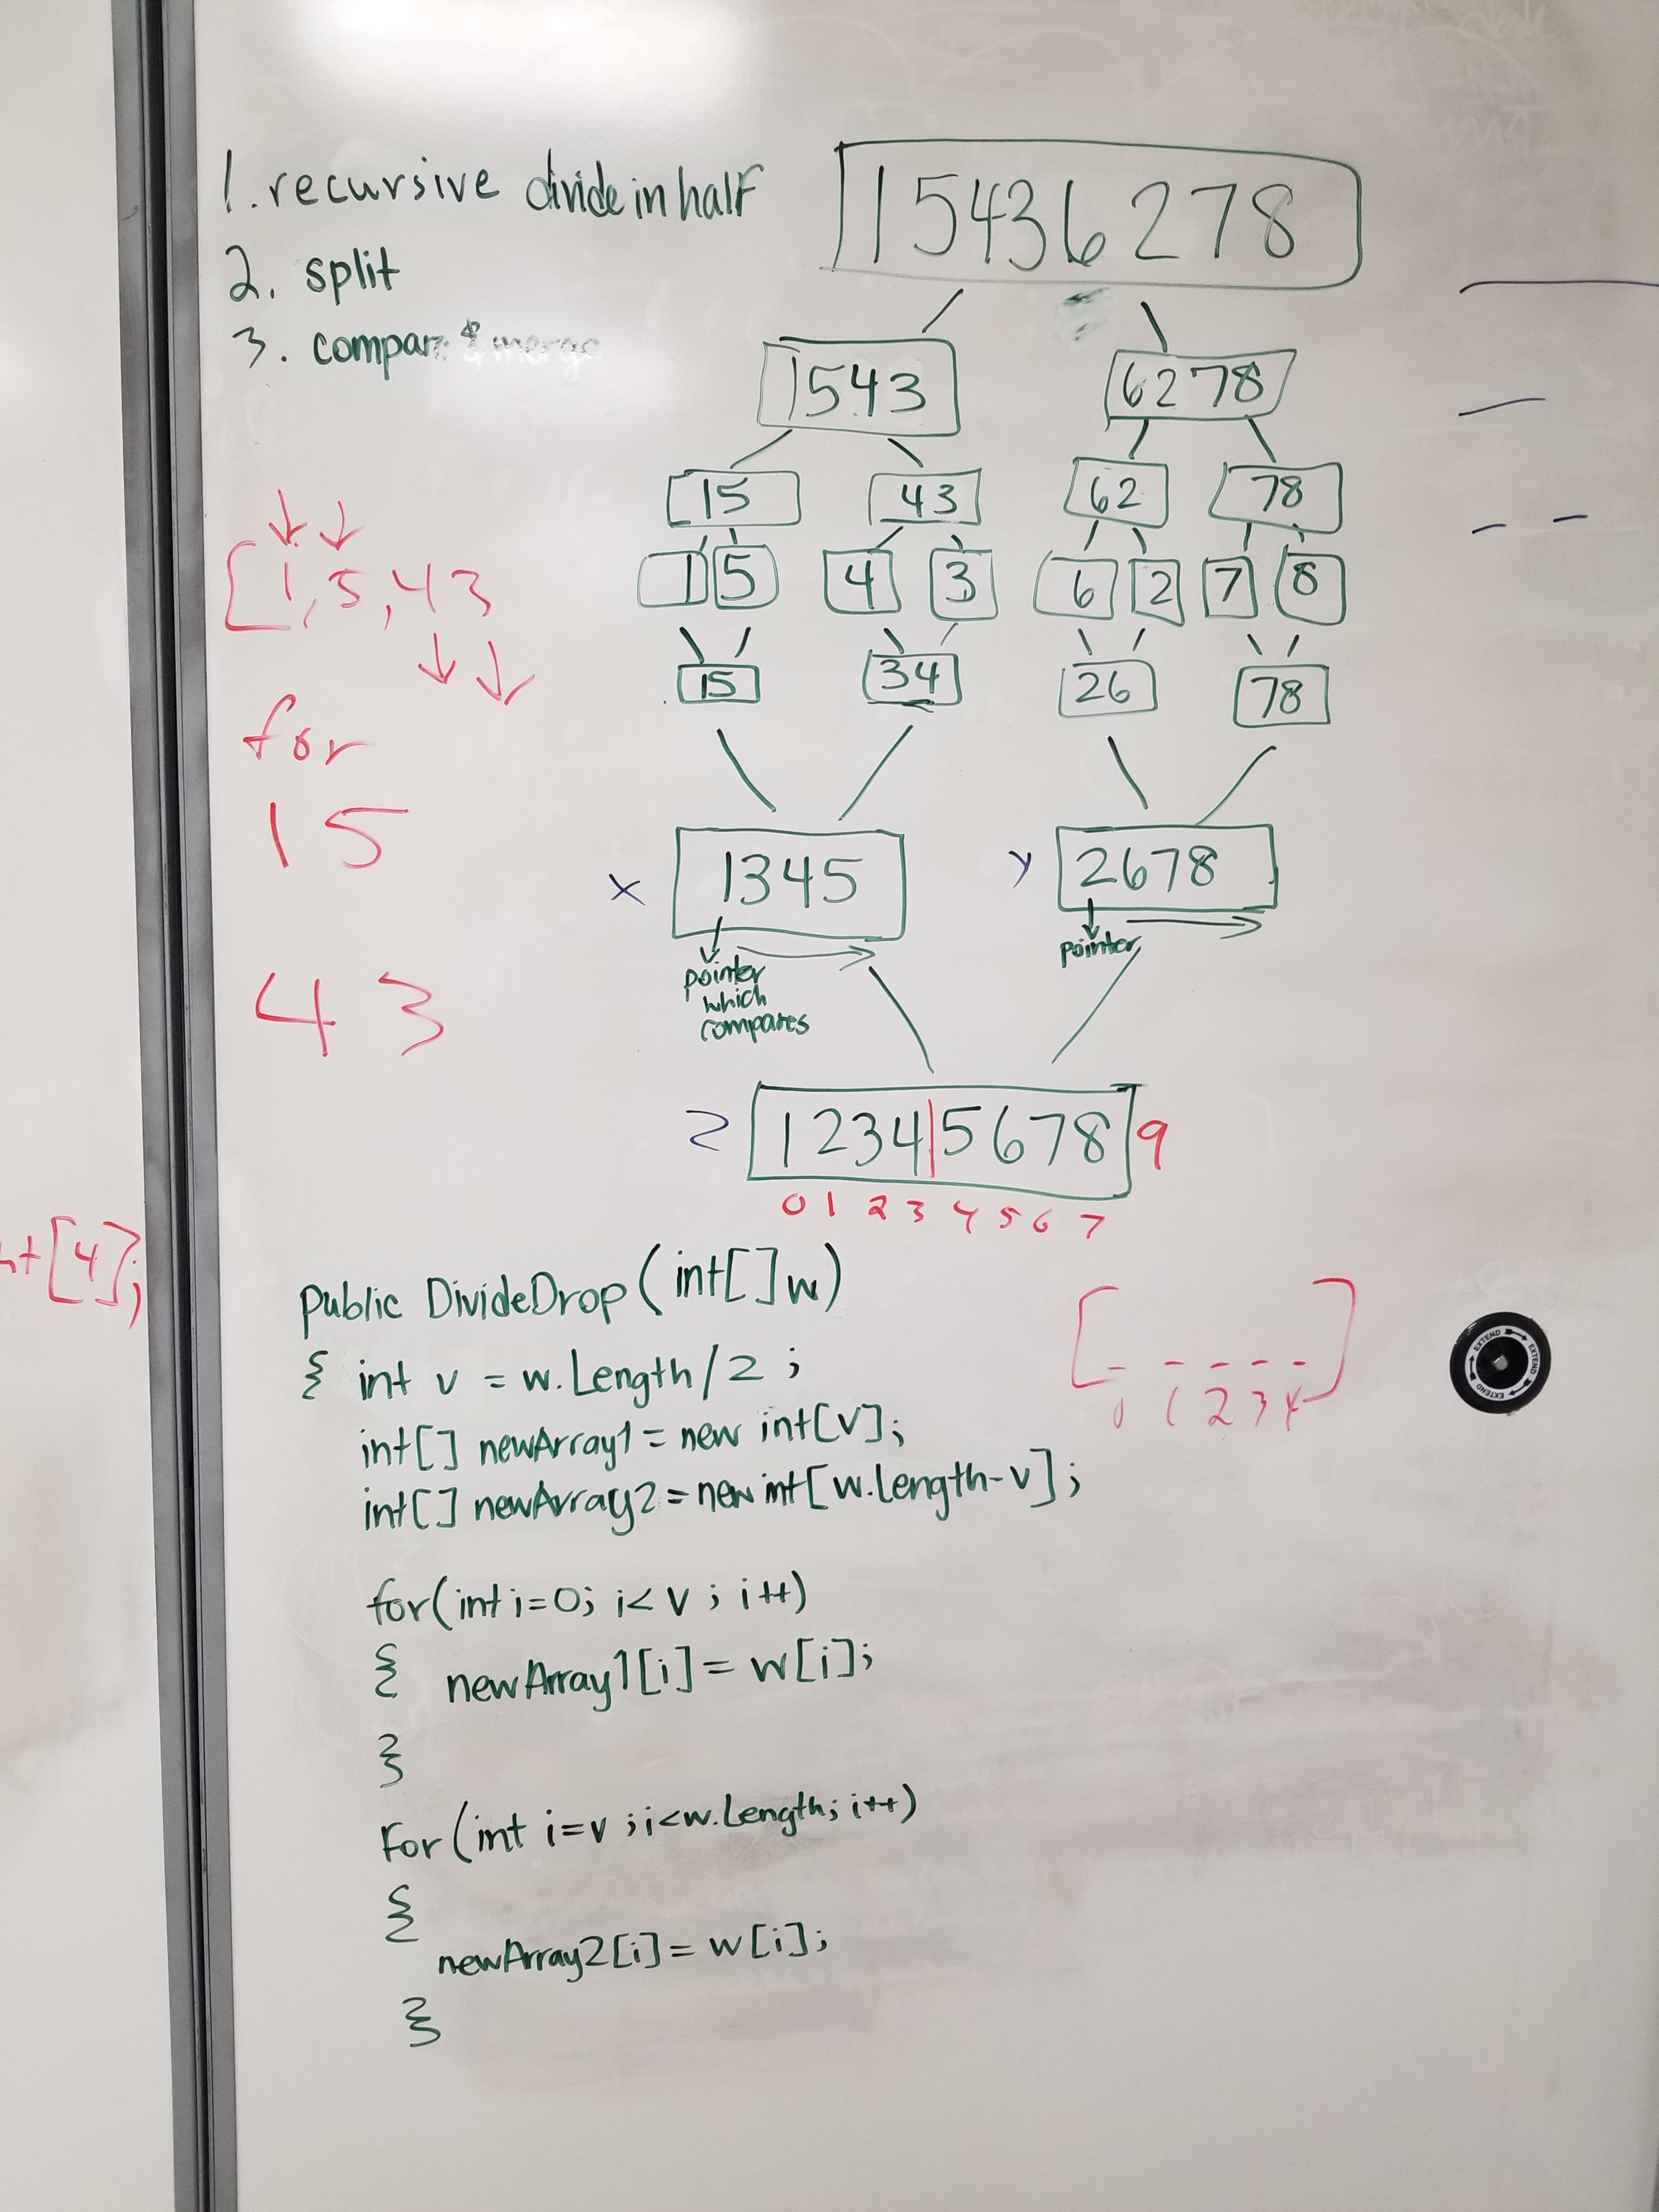 1. recursive divide in half
2. split
3. compare & merge
15436278
1543 6278
15 43 62 78
1 5 4 3 6 2 7 8
15 34 26 78
[1,5,43
for
15
43
x 1345 y 2678
pointer which compares
pointer
z 1234|5678 9
0 1 2 3 4 5 6 7
[4];
[_ _ _ _ _]
0 1 2 3 4
public DivideDrop(int[] w)
{ int v = w.Length/2;
int[] newArray1 = new int[v];
int[] newArray2 = new int[w.Length-v];
for(int i=0; i<v; i++)
{ newArray1[i] = w[i];
}
For(int i=v; i<w.Length; i++)
{
newArray2[i] = w[i];
}
EXTEND EXTEND EXTEND